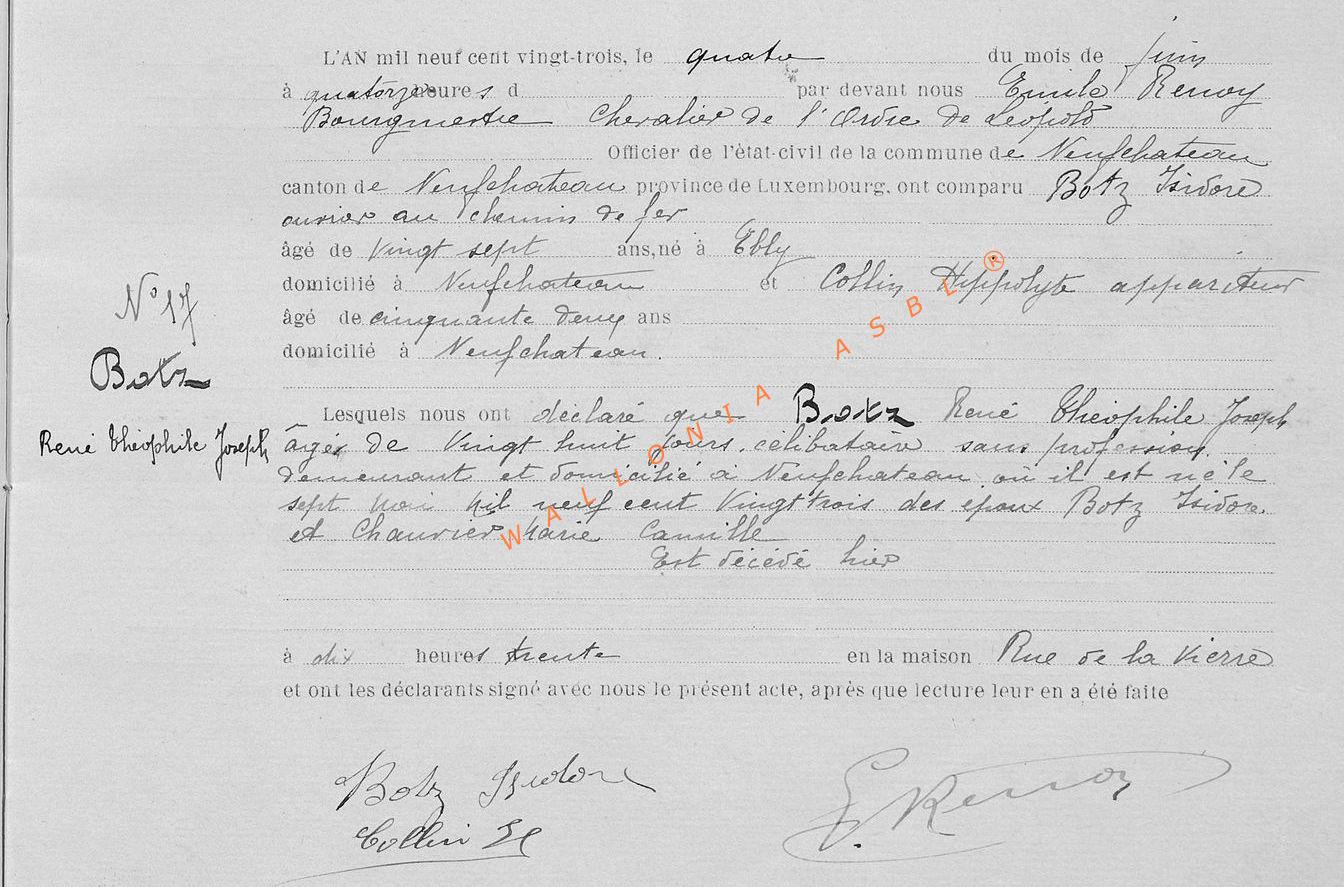 L'AN mil neuf cent vingt-trois, le quatre du mois de juin
à quatorze heures d par devant nous Emile Renoy
Bourgmestre Chevalier de l'Ordre de Léopold
Officier de l'état-civil de la commune de Neufchateau
canton de Neufchateau province de Luxembourg, ont comparu Botz Isidore
ouvrier au chemin de fer
âgé de vingt sept ans, né à Ebly
domicilié à Neufchateau et Collin Hippolyte appariteur
âgé de cinquante deux ans
domicilié à Neufchateau.
N° 17
Botz
René Théophile Joseph
Lesquels nous ont déclaré que Botz René Théophile Joseph
âgé de vingt huit jours, célibataire sans profession,
demeurant et domicilié à Neufchateau où il est né le
sept mai mil neuf cent vingt trois des époux Botz Isidore
et Chauvier Marie Camille
Est décédé hier
à dix heures trente en la maison Rue de la Vierre
et ont les déclarants signé avec nous le présent acte, après que lecture leur en a été faite
Botz Isidore
Collin H
E. Renoy
WALLONIA ASBL ®